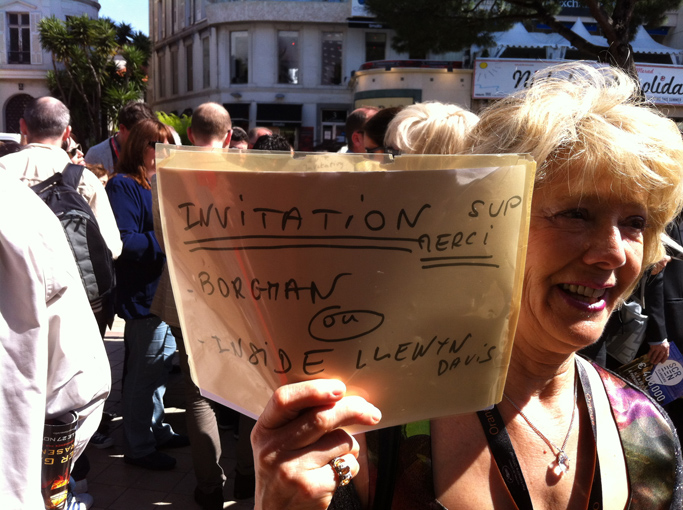 INVITATION SUP
MERCI
- BORGMAN
ou
- INSIDE LLEWYN
DAVIS